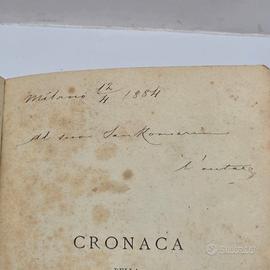 Milano 12/4 1884
Al suo
l'autore
CRONACA
DELLA
subito